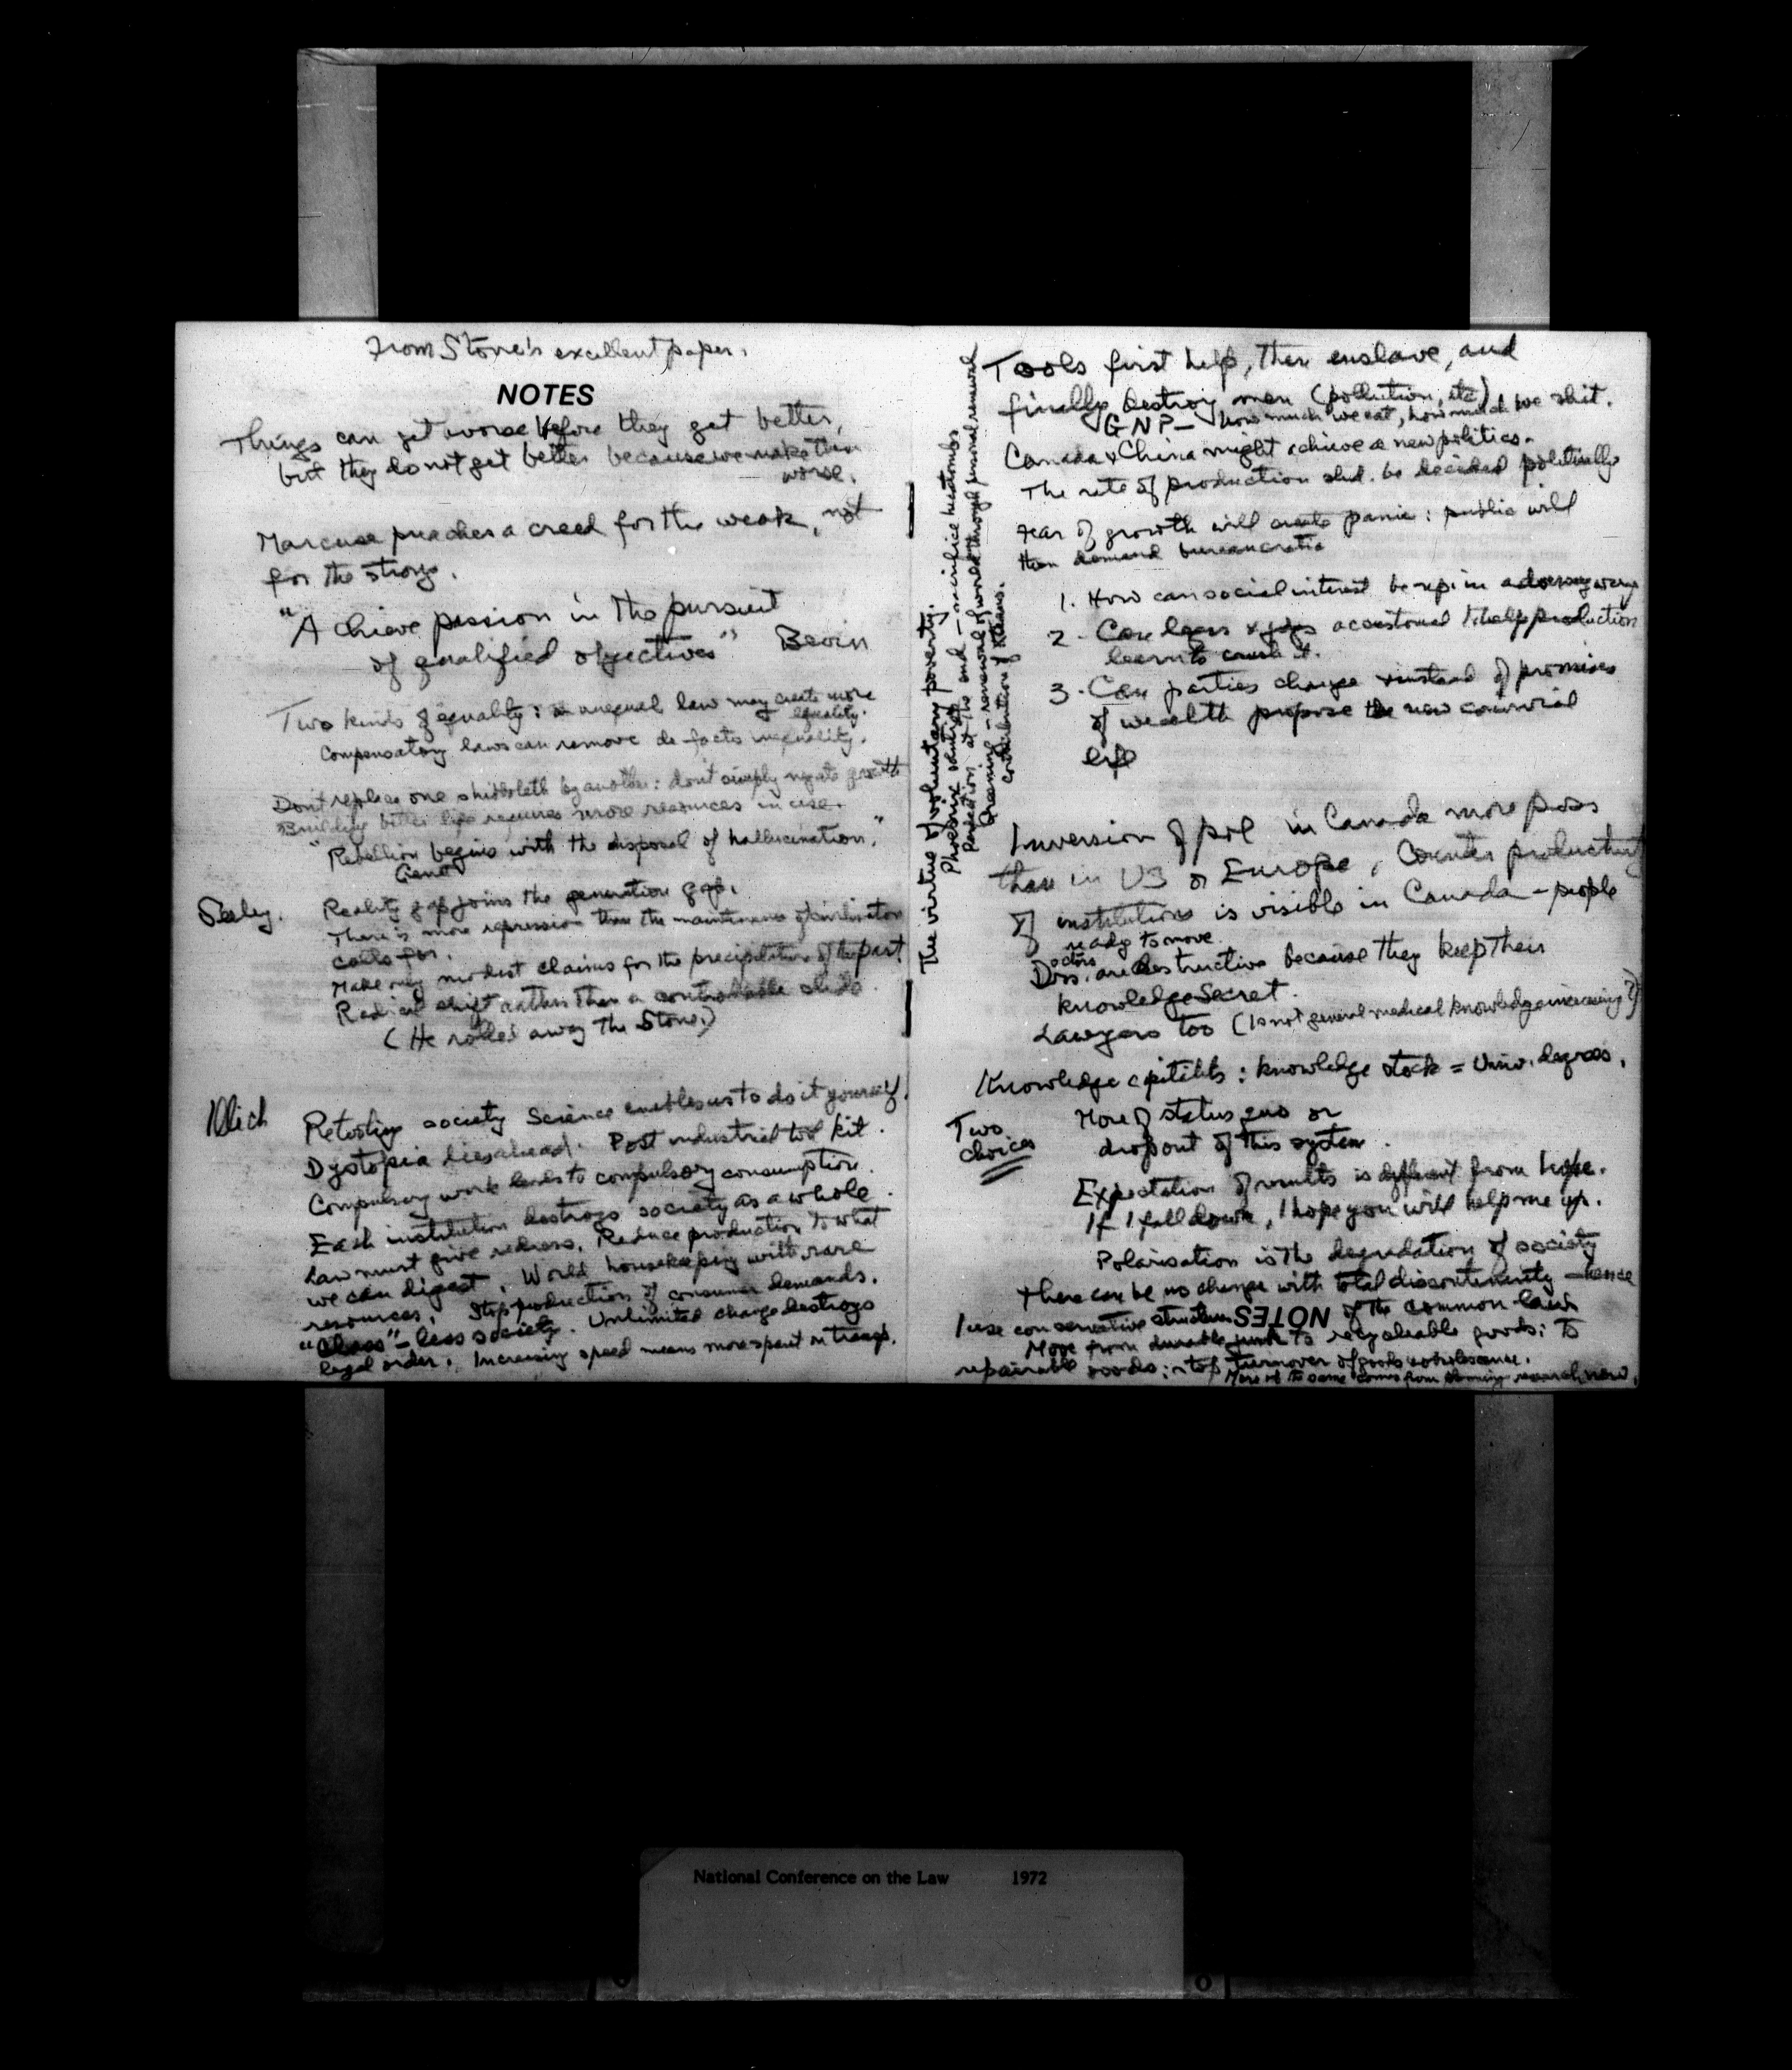 From Stone's excellent paper.
NOTES
Things can get worse before they get better,
but they do not get better because we make them
worse.
Marcuse preaches a creed for the weak, not
for the strong.
"Achieve passion in the pursuit
of qualified objectives" Bevin
Two kinds of equality: an unequal law may create more
equality.
Compensatory laws can remove de facto inequality.
Don't replace one shibboleth by another: don't simply negate growth
Building better life requires more resources in use.
"Rebellion begins with the disposal of hallucination."
Genet
Seeley. Reality gap joins the generation gap.
There is more repression than the maintenance of civilisation
calls for.
Make only modest claims for the precipitation of the part
Radical shift rather than a controllable slide.
(He rolled away the Stone.)
Illich Retooling society Science enables us to do it yourself.
Dystopia lies ahead. Post industrial tool kit.
Compulsory work leads to compulsory consumption.
Each institution destroys society as a whole.
Law must give redress. Reduce production to what
we can digest. World housekeeping with rare
resources. Stop production of consumer demands.
"Class"-less society. Unlimited change destroys
legal order. Increasing speed means more spent on transp.
The virtue of voluntary poverty.
Phoenix solution
Perfection at the end — sacrifice hecatombs
Greening — renewal of world through personal renewal
contribution of
Tools first help, then enslave, and
finally destroy man (pollution, etc)
GNP — how much we eat, how much we shit.
Canada & China might achieve a new politics.
The rate of production shd. be decided politically
Fear of growth will create panic: public will
then demand bureaucratic
1. How can social interest be rep. in adversary ways
2. Can legers & accustomed to help production
learn to curb it.
3. Can parties change & instead of promises
of wealth propose the new convivial
life
Inversion of pol in Canada more poss
than in US or Europe. Counter productivity
of institutions is visible in Canada — people
ready to move.
Doctors are destructive because they keep their
knowledge Secret.
Lawyers too (Is not general medical knowledge increasing?)
Knowledge capitalists: knowledge stock = Univ. degrees.
Two choices
More of status quo or
dropout of this system.
Expectation of results is different from hope.
If I fall down, I hope you will help me up.
Polarisation is the degradation of society
There can be no change with total discontinuity — hence
I use conservative structure of the common law
NOTES
Move from durable junk to recycleable goods: to
repairable goods: stop turnover of goods & obsolescence.
More of the same comes from planning research now.
National Conference on the Law 1972